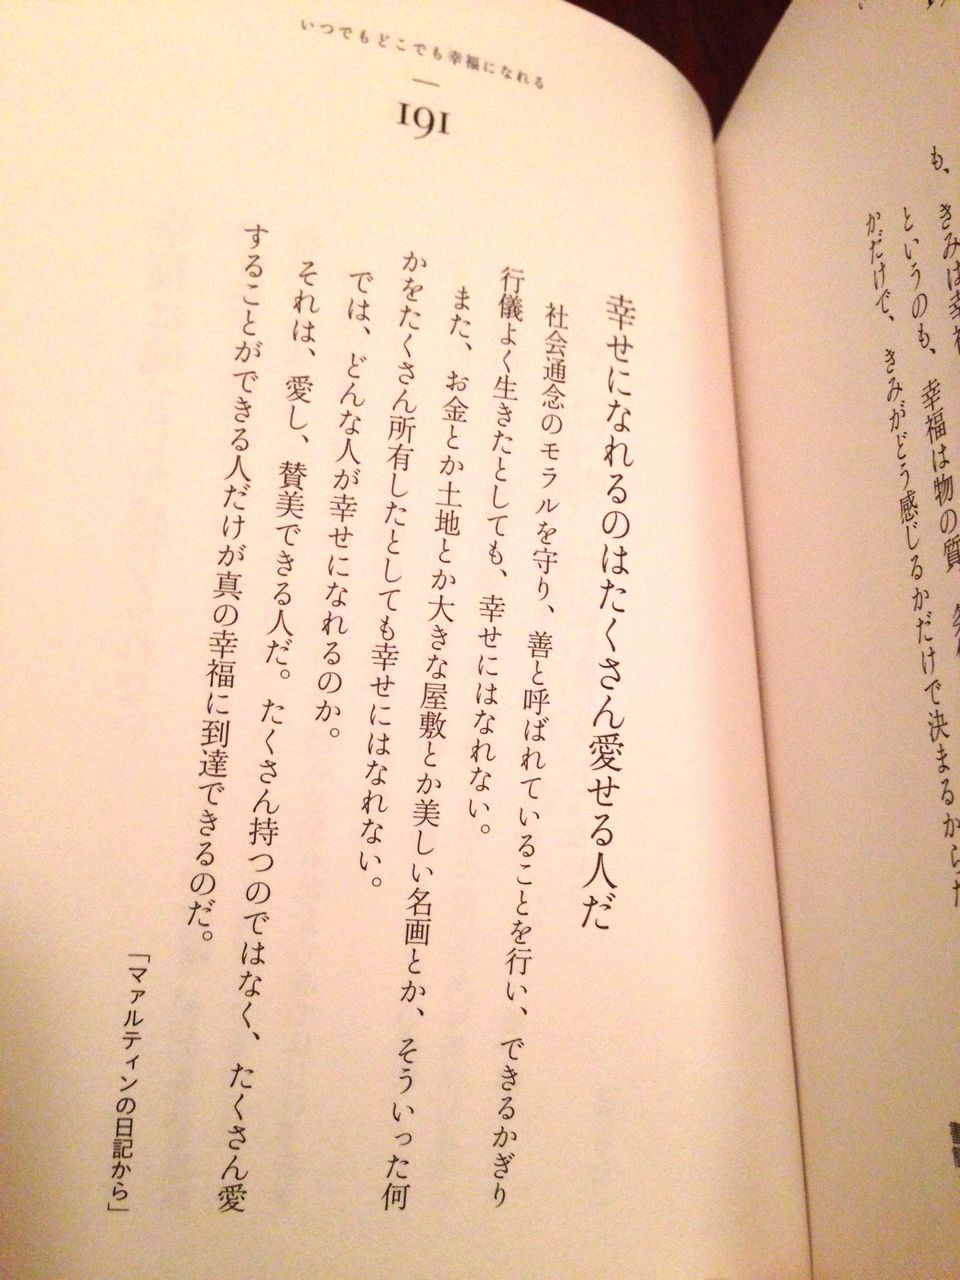 も、きみは幸
というのも、幸福は物の質
かだけで、きみがどう感じるかだけで決まるからだ
いつでもどこでも幸福になれる
191
幸せになれるのはたくさん愛せる人だ
社会通念のモラルを守り、善と呼ばれていることを行い、できるかぎり
行儀よく生きたとしても、幸せにはなれない。
また、お金とか土地とか大きな屋敷とか美しい名画とか、そういった何
かをたくさん所有したとしても幸せにはなれない。
では、どんな人が幸せになれるのか。
それは、愛し、賛美できる人だ。たくさん持つのではなく、たくさん愛
することができる人だけが真の幸福に到達できるのだ。
「マァルティンの日記から」